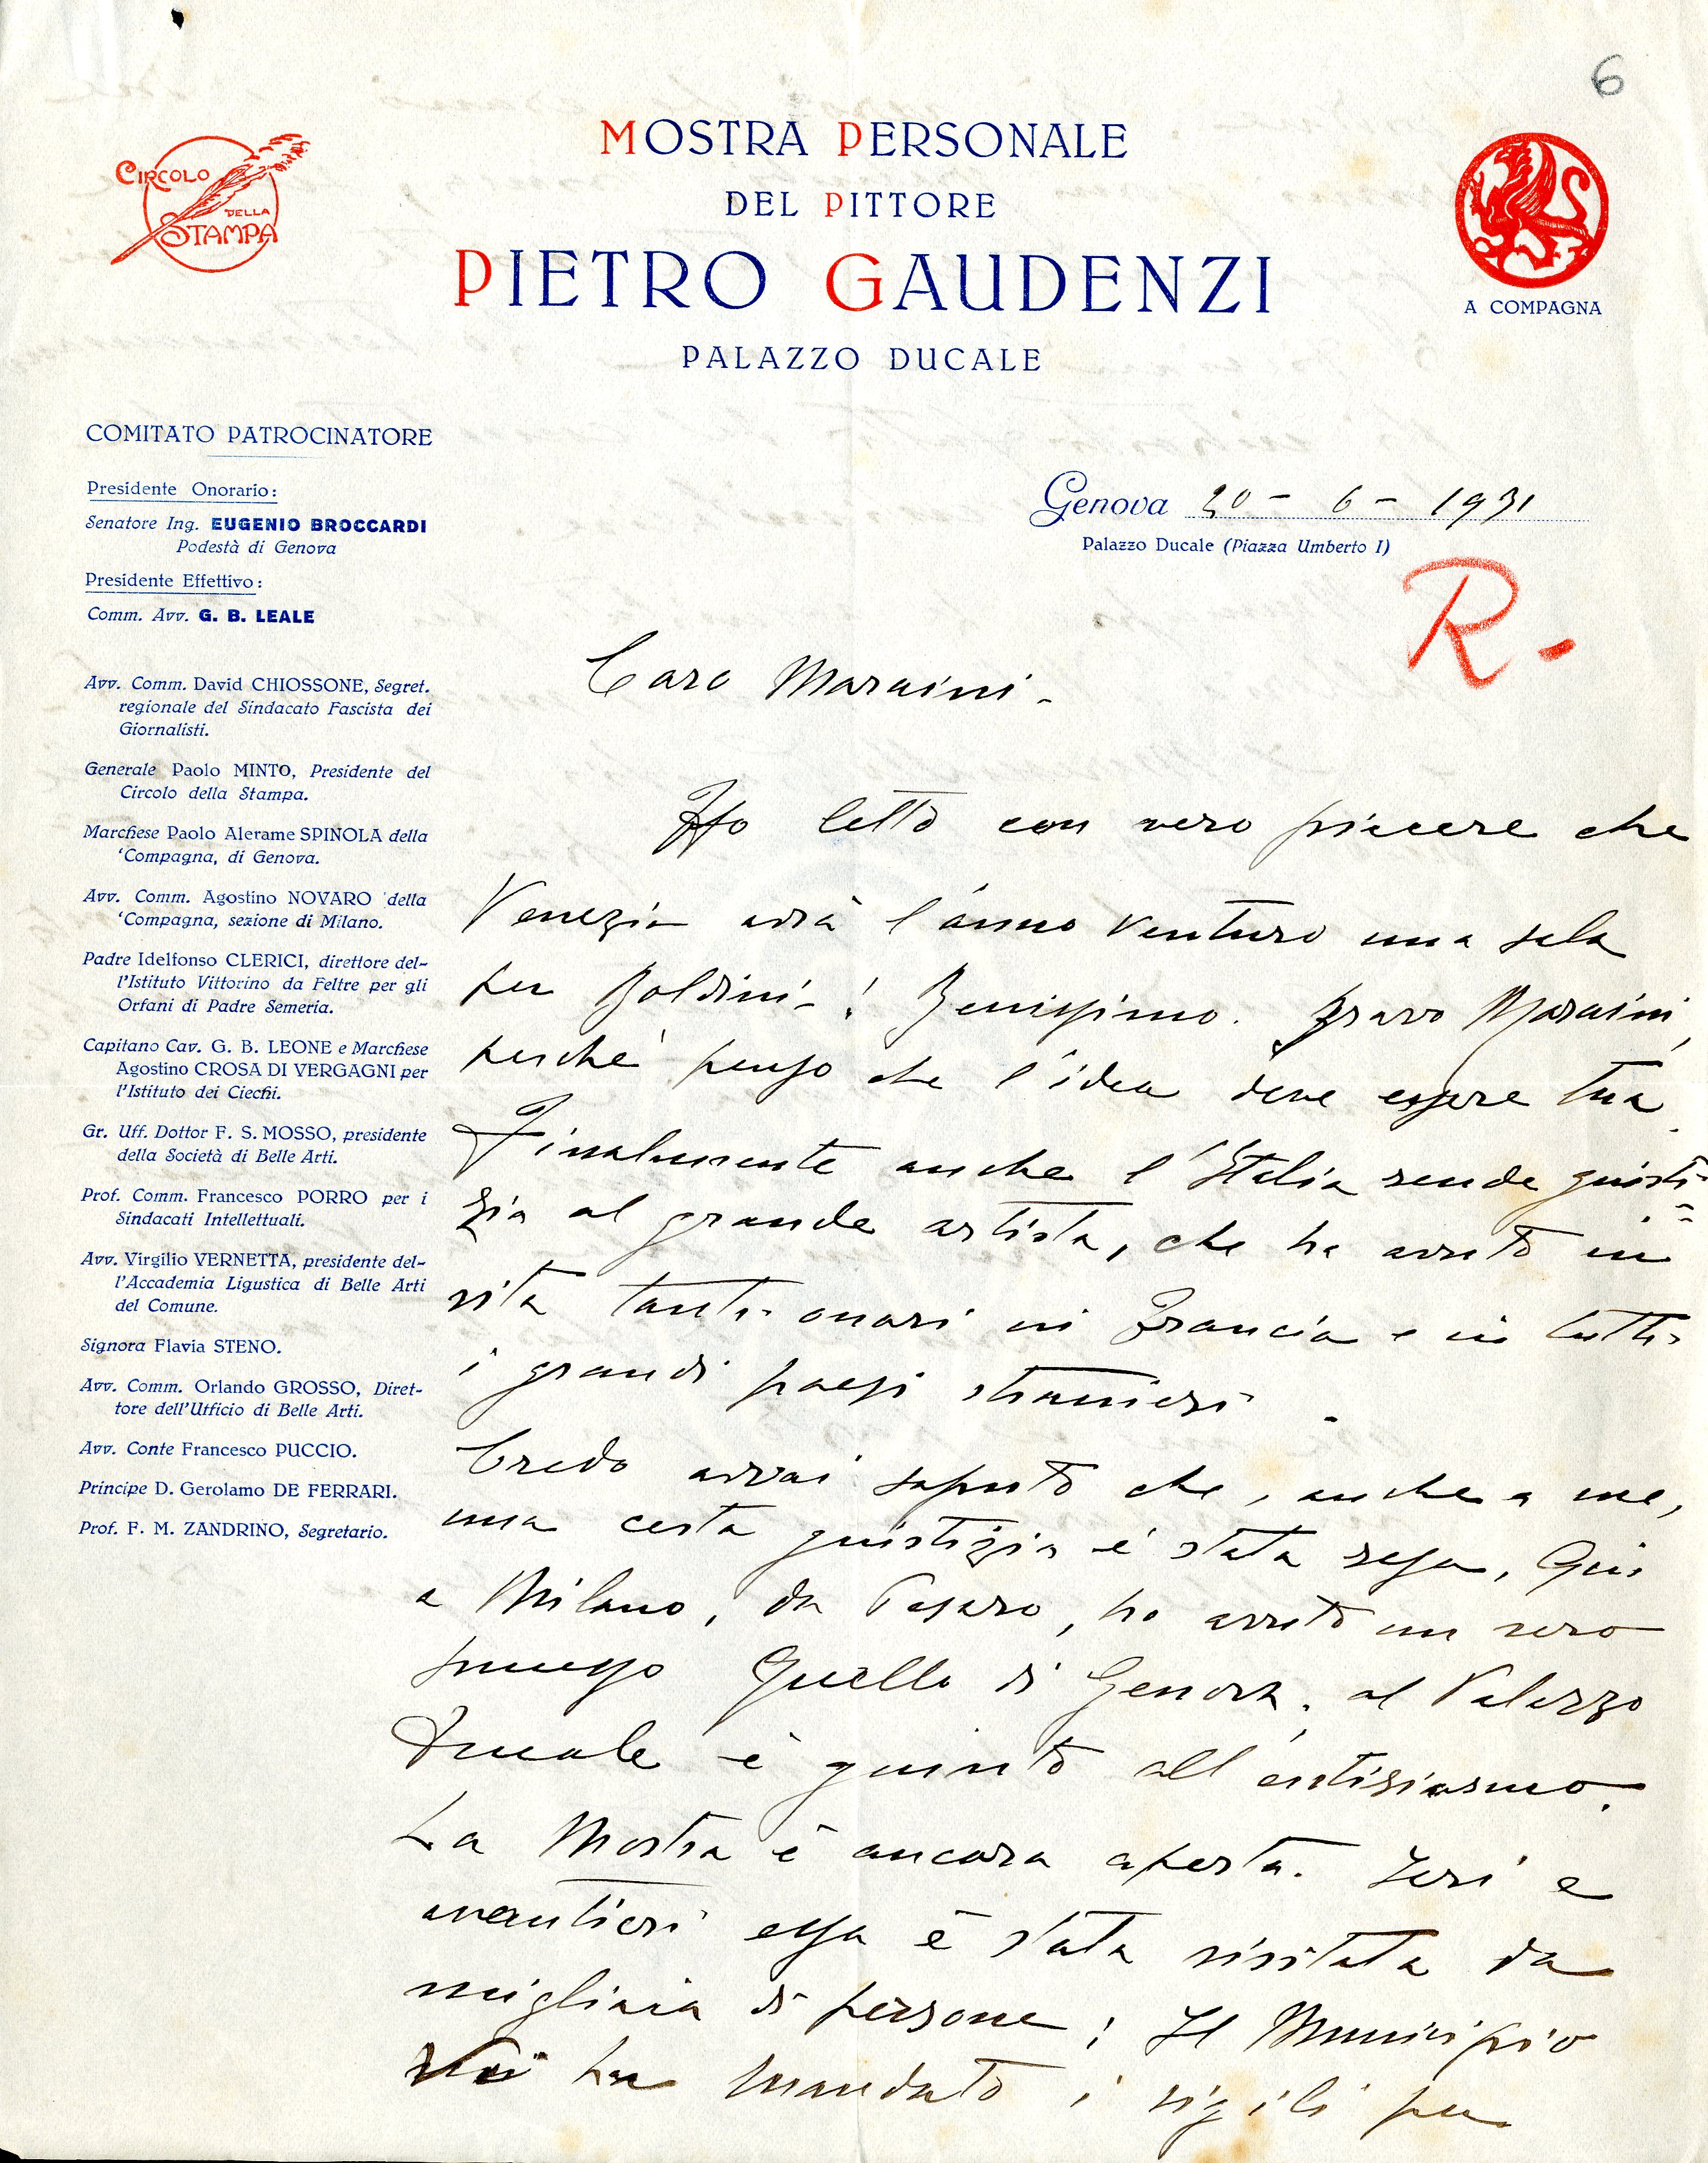 6
CIRCOLO
DELLA
STAMPA
MOSTRA PERSONALE
DEL PITTORE
PIETRO GAUDENZI
PALAZZO DUCALE
A COMPAGNA
COMITATO PATROCINATORE
Presidente Onorario:
Senatore Ing. EUGENIO BROCCARDI
Podestà di Genova
Presidente Effettivo:
Comm. Avv. G. B. LEALE
Avv. Comm. David CHIOSSONE, Segret.
regionale del Sindacato Fascista dei
Giornalisti.
Generale Paolo MINTO, Presidente del
Circolo della Stampa.
Marchese Paolo Alerame SPINOLA della
'Compagna, di Genova.
Avv. Comm. Agostino NOVARO 'della
'Compagna, sezione di Milano.
Padre Idelfonso CLERICI, direttore del-
l'Istituto Vittorino da Feltre per gli
Orfani di Padre Semeria.
Capitano Cav. G. B. LEONE e Marchese
Agostino CROSA DI VERGAGNI per
l'Istituto dei Ciechi.
Gr. Uff. Dottor F. S. MOSSO, presidente
della Società di Belle Arti.
Prof. Comm. Francesco PORRO per i
Sindacati Intellettuali.
Avv. Virgilio VERNETTA, presidente del-
l'Accademia Ligustica di Belle Arti
del Comune.
Signora Flavia STENO.
Avv. Comm. Orlando GROSSO, Diret-
tore dell'Ufficio di Belle Arti.
Avv. Conte Francesco PUCCIO.
Principe D. Gerolamo DE FERRARI.
Prof. F. M. ZANDRINO, Segretario.
Genova 20 - 6 - 1931
Palazzo Ducale (Piazza Umberto I)
R.
Caro Maraini -
Ho letto con vero piacere che
Venezia avrà l'anno venturo una sala
per Boldini! Benissimo. Bravo Maraini,
perchè penso che l'idea deve essere tua.
Finalmente anche l'Italia rende giusti=
zia al grande artista, che ha avuto in
vita tanti onori in Francia e in tutti
i grandi paesi stranieri.
Credo avrai saputo che, anche a me,
una certa giustizia è stata resa. Qui
a Milano, da Pesaro, ho avuto un vero
successo Quello di Genova, al Palazzo
Ducale è giunto all'entusiasmo.
La Mostra è ancora aperta. Ieri e
avantieri essa è stata visitata da
migliaia di persone; Il Municipio
ha mandato i vigili per